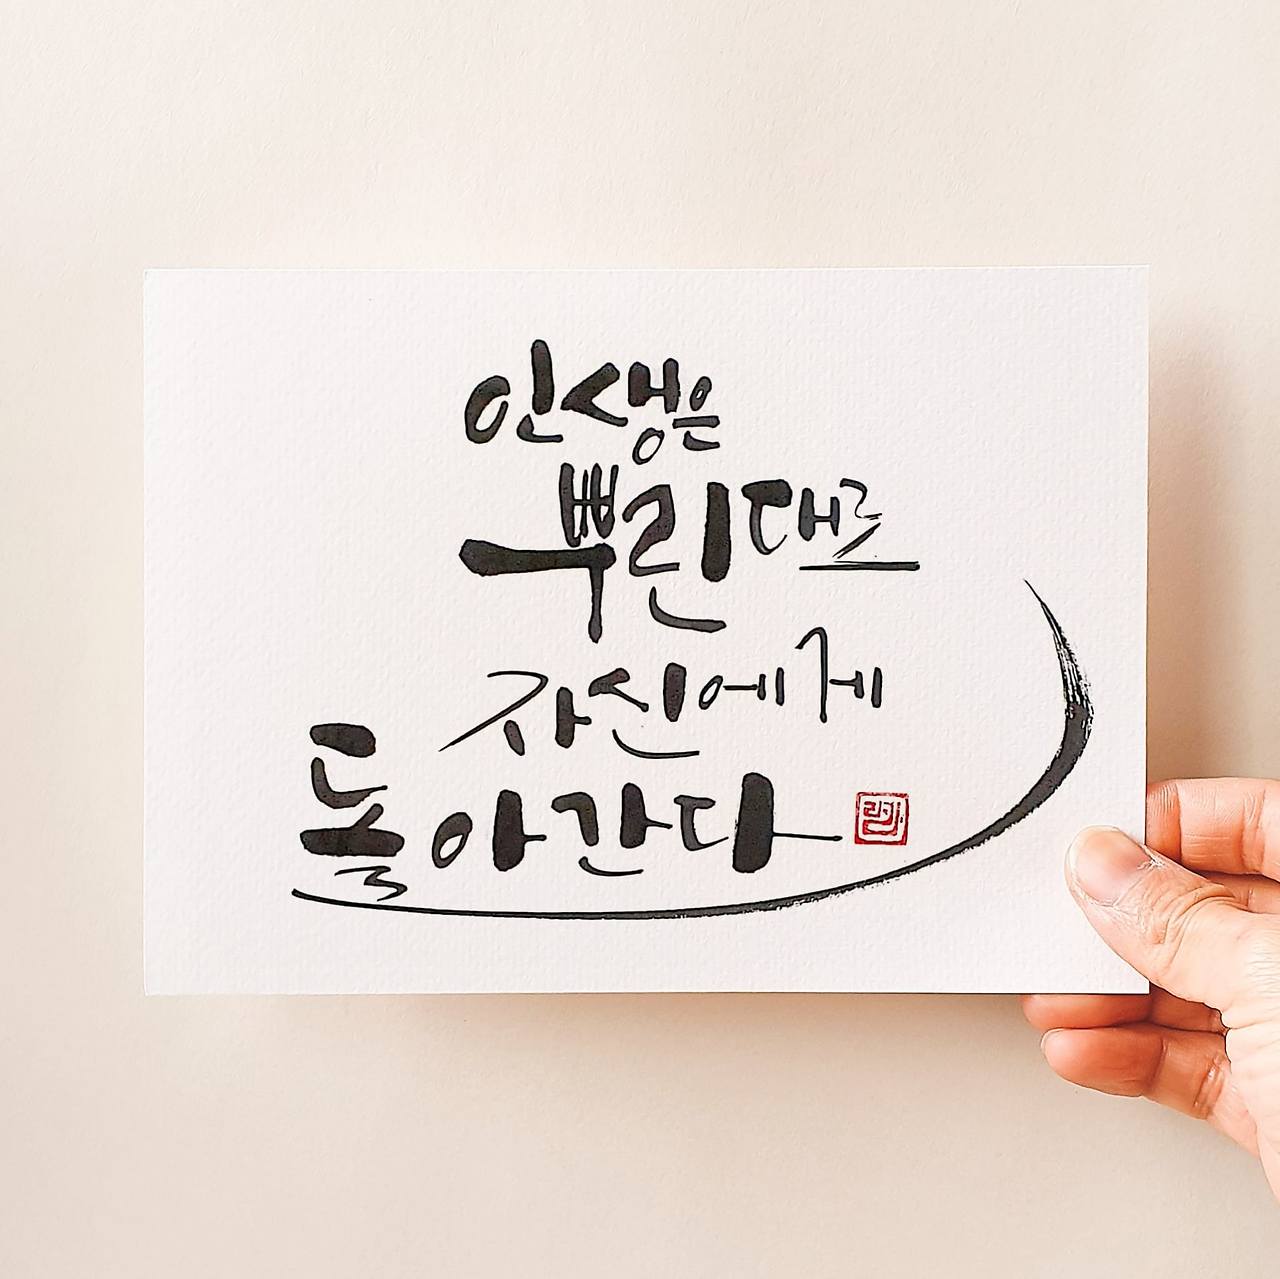 인생은
뿌린대로
자신에게
돌아간다